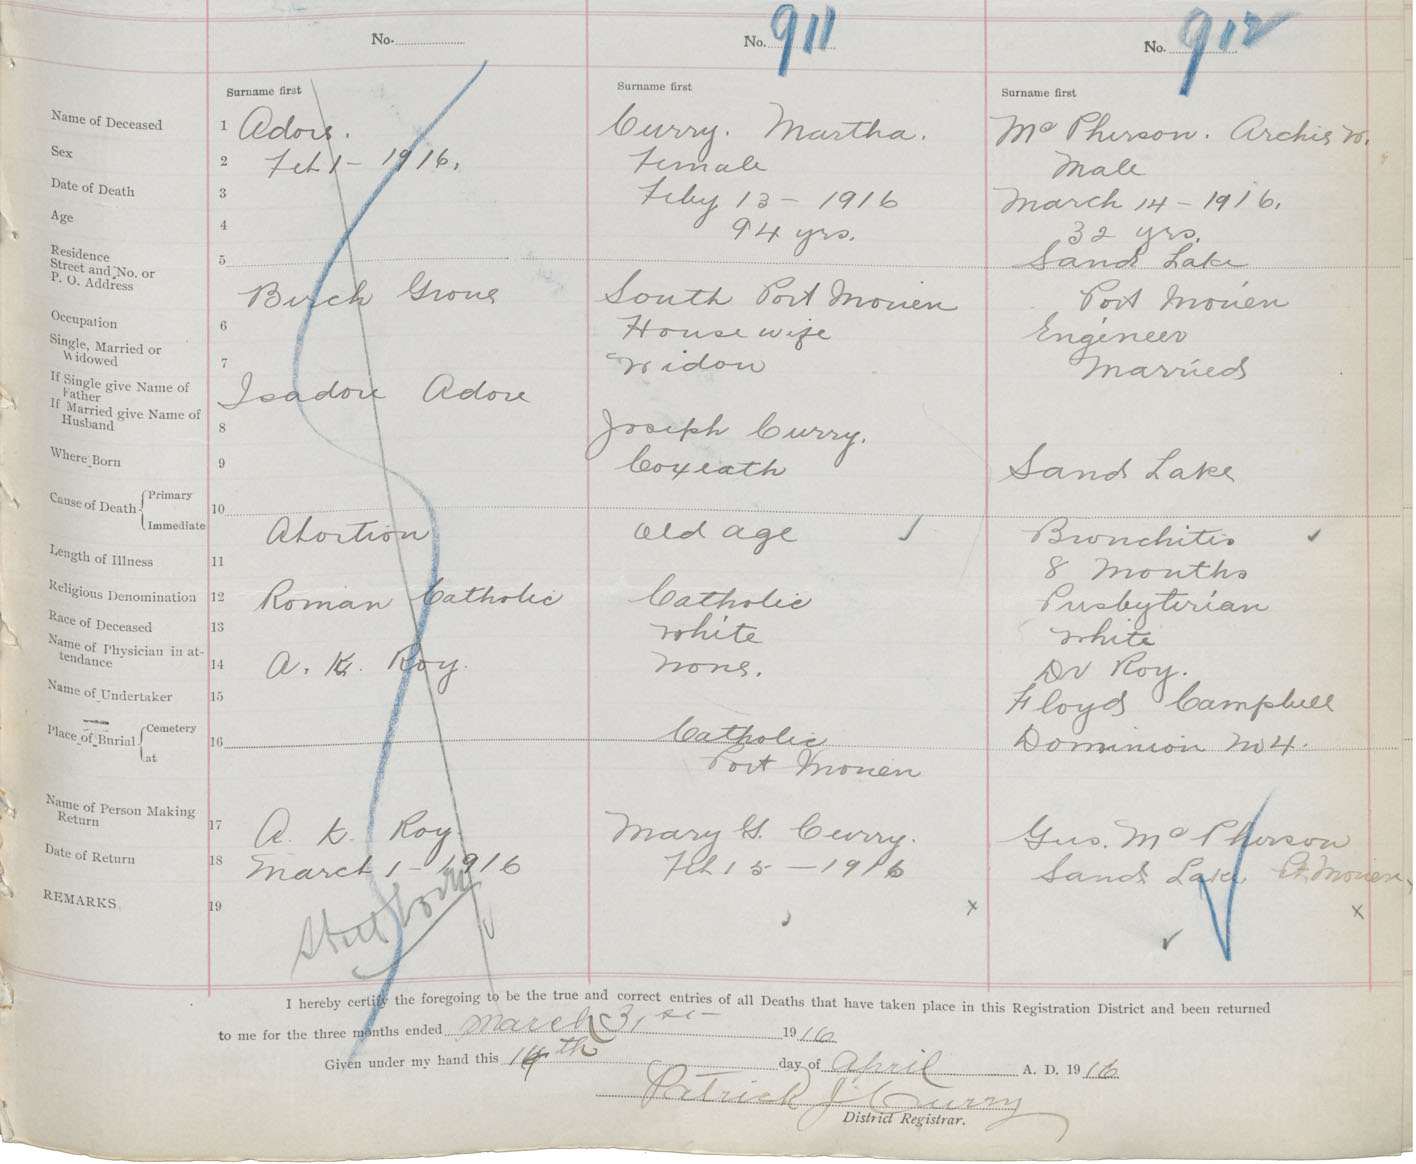 No.
No. 911
No. 912
Surname first
Surname first
Surname first
Name of Deceased 1 Adore. Curry. Martha. Mc Pherson. Archie W.
Sex 2 Feb 1 - 1916. Female Male
Date of Death 3 Feby 13 - 1916 March 14 - 1916.
Age 4 94 yrs. 32 yrs.
Residence
Street and No. or
P. O. Address
5 Sand Lake
Birch Grove South Port Morien Port Morien
Occupation 6 Housewife Engineer
Single, Married or
Widowed
7 Widow Married
If Single give Name of
Father
Isadore Adore
If Married give Name of
Husband
8 Joseph Curry.
Where Born 9 Coxeath Sand Lake
Cause of Death { Primary
Immediate
10
Abortion Old age Bronchitis
Length of Illness 11 8 Months
Religious Denomination 12 Roman Catholic Catholic Presbyterian
Race of Deceased 13 White White
Name of Physician in at-
tendance
14 A. K. Roy. None. Dr Roy.
Name of Undertaker 15 Floyd Campbell
Place of Burial { Cemetery
at
16 Catholic Dominion No 4.
Port Morien
Name of Person Making
Return
17 A. K. Roy. Mary G. Curry. Gus. Mc Pherson
Date of Return 18 March 1 - 1916 Feb 15 - 1916 Sand Lake Pt. Morien
REMARKS 19 Still born
I hereby certify the foregoing to be the true and correct entries of all Deaths that have taken place in this Registration District and been returned
to me for the three months ended March 31st 1916
Given under my hand this 14th day of April A. D. 1916
Patrick J. Curry
District Registrar.